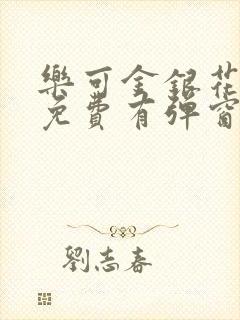 樂可金銀花
免費有彈窗
劉志春